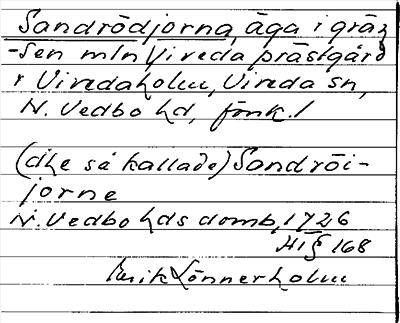 Sandrödjorna, äga i grän-
sen mln Vireda prästgård
o Viredaholm, Vireda sn,
N. Vedbo hd, Jönk. l
(dhe så kallade) Sandröi-
jorne
N. Vedbo hds domb, 1726
HI § 168
Erik Lönnerholm